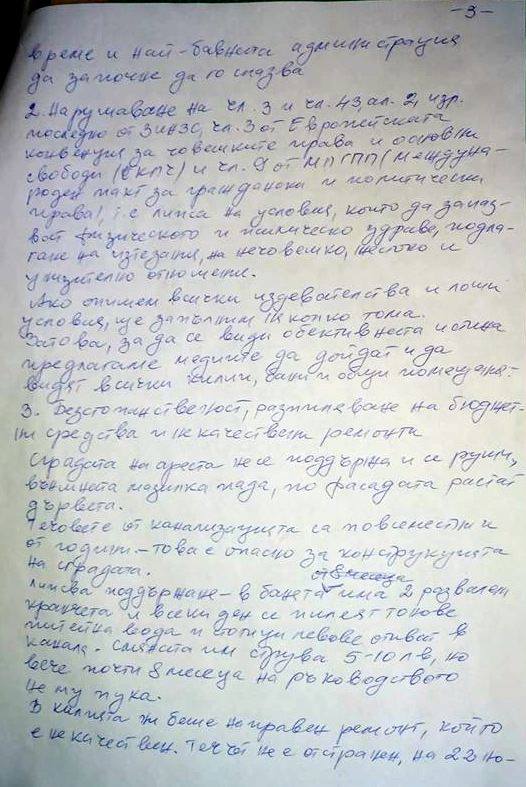 -3-
време и най-бавната администрация
да започне да го спазва
2. Нарушаване на чл. 3 и чл. 43, ал. 2, изр.
последно от ЗИНЗС, чл. 3 от Европейската
конвенция за човешките права и основни
свободи (ЕКПЧ) и чл. 9 от МПГПП (Междуна-
роден пакт за граждански и политически
права), т.е липса на условия, които да запаз-
ват физическото и психическо здраве, подла-
гане на изтезания, на нечовешко, жестоко и
унизително отношение.
Ако опишем всички издевателства и лоши
условия, ще запълним няколко тома.
Затова, за да се види обективната истина
предлагаме медиите да дойдат и да
видят всички килии, бани и общи помещения.
3. Безстопанственост, разпиляване на бюджет-
ни средства и некачествени ремонти
Сградата на ареста не се поддържа и се руши,
външната мазилка пада, по фасадата растат
дървета.
Течовете от канализацията са повсеместни и
от години - това е опасно за конструкцията
на сградата.
Липсва поддържане - в банята има 2 развалени
кранчета и всеки ден се пилеят тонове
питейна вода и стотици левове отиват в
канала. Смяната им струва 5-10 лв, но
вече почти 8 месеца на ръководството
не му пука.
В килията ни беше направен ремонт, който
е некачествен. Течът не е отстранен, на 22 но-